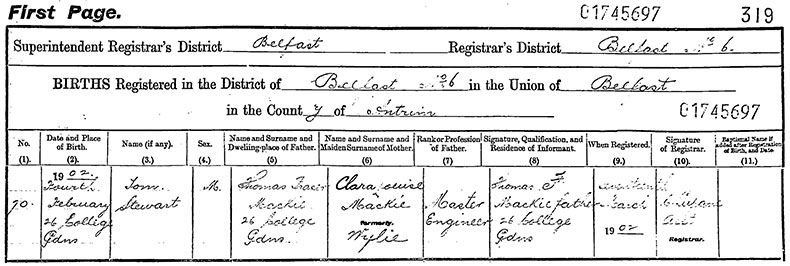 First Page. 01745697 319
Superintendent Registrar's District Belfast Registrar's District Belfast No 6.
BIRTHS Registered in the District of Belfast No 6 in the Union of Belfast
in the County of Antrim 01745697
No. (1).
Date and Place of Birth. (2).
Name (if any). (3.)
Sex. (4.)
Name and Surname and Dwelling-place of Father. (5)
Name and Surname and Maiden Surname of Mother. (6)
Rank or Profession of Father. (7)
Signature, Qualification, and Residence of Informant. (8)
When Registered. (9.)
Signature of Registrar. (10.)
Baptismal Name if added after Registration of Birth, and Date. (11.)
70.
1902.
Fourth
February
26 College
Gdns
Tom
Stewart
M.
Thomas
Mackie
26 College
Gdns.
Clara Louise
Mackie
formerly
Wylie
Master
Engineer
Thomas F.
Mackie father
26 College
Gdns
March
1902
Asst
Registrar.